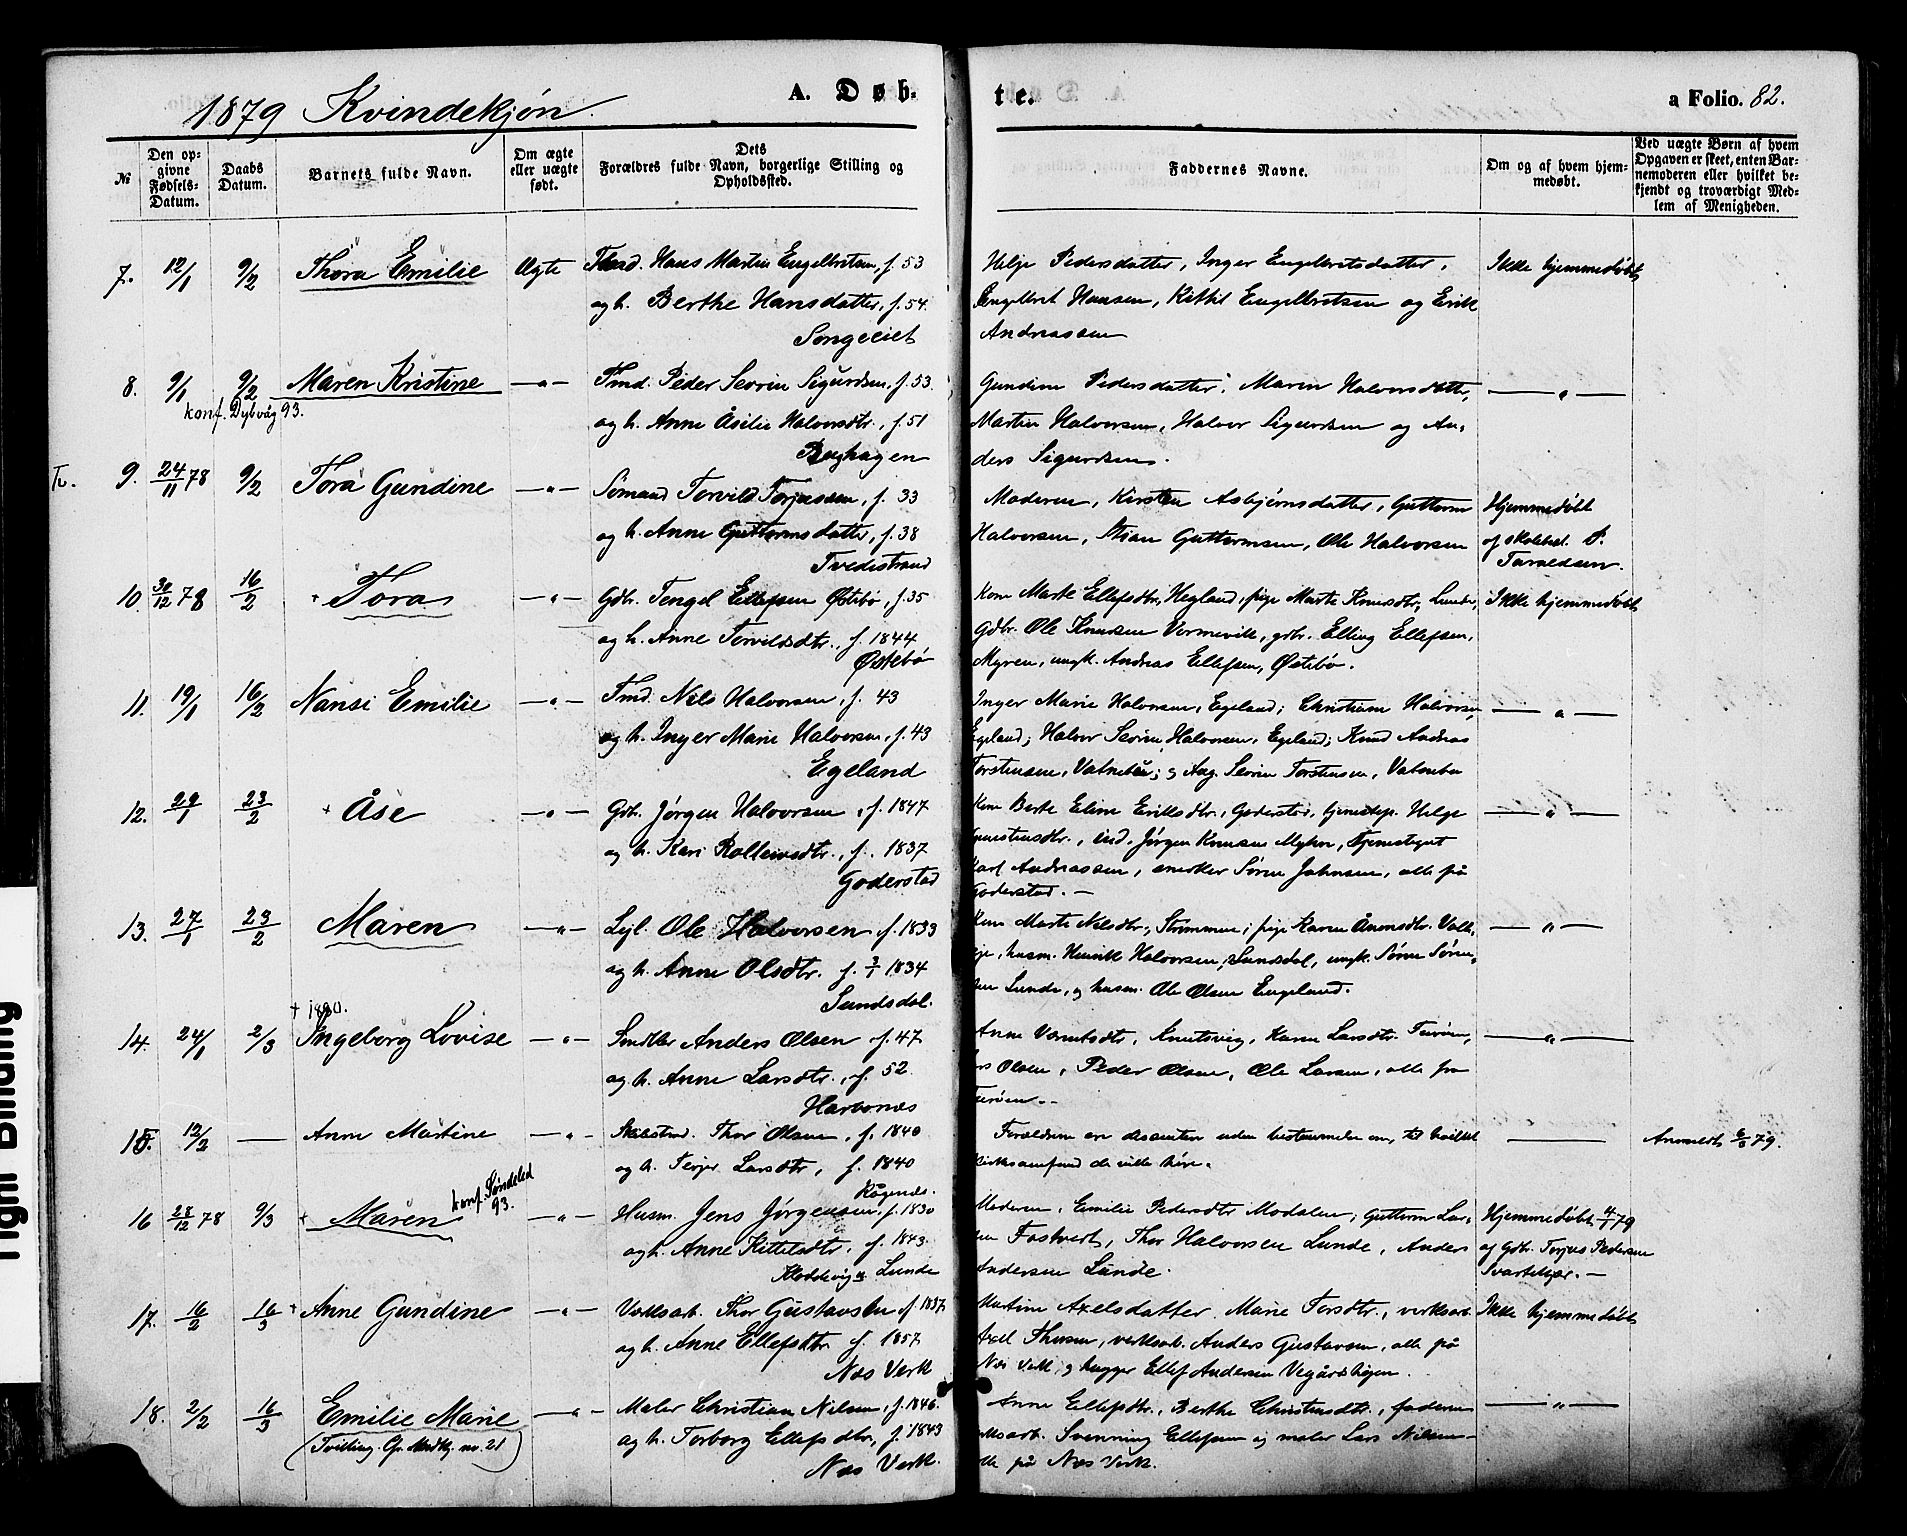 1879 Kvindekjøn.
A. Døb-
te.
a Folio. 82.
№
Den opgivne Fødsels-Datum.
Daabs Datum.
Barnets fulde Navn.
Om ægte eller uægte født.
Dets Forældres fulde Navn, borgerlige Stilling og Opholdssted.
Faddernes Navne.
Om og af hvem hjemmedøbt.
Ved uægte Børn af hvem Opgaven er skeet, enten Barnemoderen eller hvilket bekjendt og troværdigt Medlem af Menigheden.
7. 12/1 9/2 Thora Emilie Ægte Tmd. Hans Martin Engelbretsen, f. 53
og h. Berthe Hansdatter, f. 54.
Songeeiet
Helje Pedersdatter, Inger Engelbretsdatter,
Engelbret Hansen, Kittil Engelbretsen og Erik
Andreassen
Ikke hjemmedøbt
8. 9/1 9/2 Maren Kristine —"— Tmd. Peder Severin Sigurdsen, f. 53.
konf. Dybvåg 93.
og h. Anne Åsilie Halvorsdtr., f. 51
Berghagen
Gundine Pedersdatter, Maren Halvorsdatter,
Martin Halvorsen, Halvor Sigurdsen og An-
ders Sigurdsen.
—"—
Tv. 9. 24/11 78 9/2 Tora Gundine —"— Sømand Torvild Torjussen, f. 33
og h. Anne Guttormsdatter, f. 38
Tvedestrand
Moderen, Kirsten Asbjørnsdatter, Guttorm
Halvorsen, Stian Guttormsen, Ole Halvorsen
Hjemmedøbt
af skolehol. P.
Taraldsen.
10. 30/12 78 16/2 Tora —"— Gdbr. Tengel Ellefsen Østebø, f. 35
og h. Anne Torvildsdtr., f. 1844
Østebø
Kone Marte Ellefsdtr, Hegland, pige Marte Knudsdtr, Lunde,
Gdbr. Ole Knudsen Vormevik, gdbr. Elling Ellefsen,
Myren, ungk. Andreas Ellefsen, Østebø.
Ikke hjemmedøbt
11. 19/1 16/2 Nansi Emilie —"— Tmd. Nils Halvorsen, f. 43
og h. Inger Marie Halvorsen, f. 43
Egeland
Inger Marie Halvorsen, Egeland; Christiane Halvorsen,
Egeland; Halvor Severin Halvorsen, Egeland; Knud Andreas
Torstensen, Vatnebu; og Aug. Severin Torstensen, Vatnebu
—"—
12. 29/1 23/2 + Åse —"— Gdbr. Jørgen Halvorsen, f. 1847
og h. Kari Rolleivsdtr., f. 1837
Goderstad
Kone Berte Eline Eriksdtr., Goderstad, tjenestep. Helge
ind. Jørgen Knudsen Myhre, Tjenestegut
Karl Andreassen, snerker Søren Johnsen, alle på
Goderstad. —
—"—
13. 27/1 23/2 Maren —"— Lejl. Ole Halvorsen f. 1833
og h. Anne Olsdtr. f. 3/1 1834
Sundsdal.
Kone Marte Nilsdtr., Strømmen; pige Karen Ånonsdtr. Valle-
husm. Henrik Halvorsen, Sundsdal, ungk. Søren Søren-
sen Lunde, og husm. Ole Olsen Engeland.
—"—
† 1880.
14. 24/1 2/3 Ingeborg Lovise —"— Anders Olsen f. 47
og h. Anne Larsdtr., f. 52.
Harbonæs
Anne Knutsvig, Karen Larsdtr. Furøen,
Lars Olsen, Peder Olsen, Ole Larsen, alle fra
Furøen. —
—"—
15. 12/2 — Anne Martine —"— Thor Olsen, f. 1840
og h. Terjer Larsdtr, f. 1840
Røgenæs.
Forældrene er dissentere uden bestemmelse om, til hvilket
kirkesamfund de ville høre.
—
Anmeldt 6/3 79.
konf. Søndeled 93.
16 28/12 78 9/3 + Maren —"— Husm. Jens Jørgensen, f. 1830
og h. Anne Kittelsdtr, f. 1843.
Kloddevig u. Lunde
Moderen, Emilie Pedersdtr Modalen, Guttorm Lar-
sen Fostvert, Thor Halvorsen Lunde, Anders
Andersen Lunde.
Hjemmedøbt 4/1 79
af Gdbr. Torjus Pedersen
Svartekjær. —
17. 16/2 16/3 + Anne Gundine —"— Værksarb. Thor Gustavsen f. 1857
og h. Anne Ellefsdtr f. 1857.
Næs Værk
Martine Axelsdatter, Marie Torsdtr., verksarb.
Axel Thusen, verksarb. Anders Gustavsen, alle på
Næs Værk, og hugger Ellef Andersen Vegårdsheien.
Ikke hjemmedøbt
18. 2/2 16/3 Emilie Marie —"— Maler Christian Nilsen, f. 1846.
(Tvilling. Cfr. Mandkj. no. 21)
og h. Torborg Ellefsdtr, f. 1843
Næs Verk.
Anne Ellefsdtr., Berthe Christensdtr., faderen
verksarb. Svenning Ellefsen og maler Lars Nilsen —
alle på Næs Verk.
—"—
Tight Binding